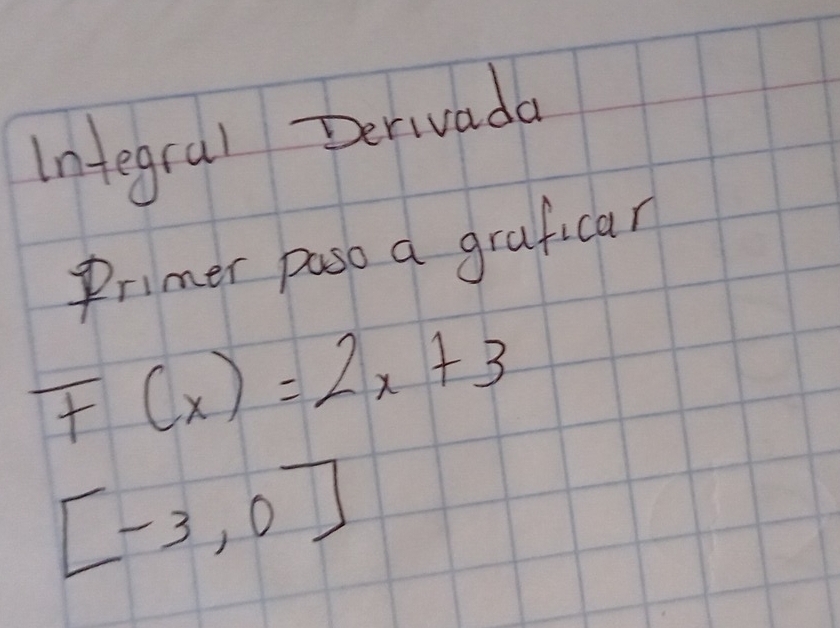 Integral Derivada
Primer paso a graficar
F(x) = 2x + 3
[-3, 0]